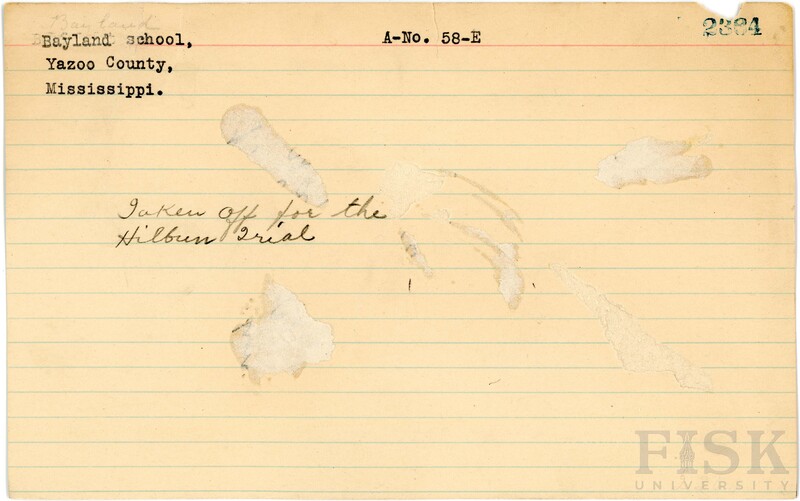 Bayland
Bayland school, A-No. 58-E 2364
Yazoo County,
Mississippi.
Taken off for the
Hilbun Trial
FISK
UNIVERSITY